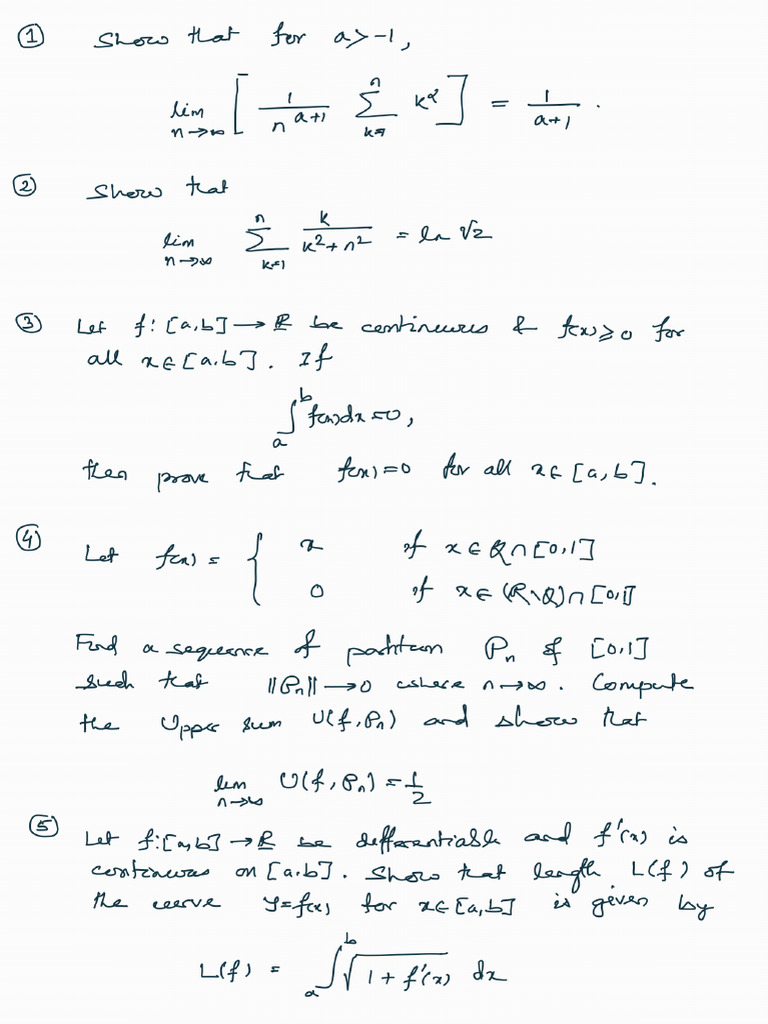 ① Show that for a > -1,
lim n→∞ [ 1/n^(a+1) ∑_{k=1}^{n} k^a ] = 1/(a+1) .
② Show that
lim n→∞ ∑_{k=1}^{n} k/(k²+n²) = ln √2
③ Let f: [a,b] → ℝ be continuous & f(x) ≥ 0 for
all x ∈ [a,b]. If
∫_a^b f(x)dx = 0,
then prove that f(x) = 0 for all x ∈ [a,b].
④ Let f(x) = { x if x ∈ ℚ ∩ [0,1]
0 if x ∈ (ℝ\ℚ) ∩ [0,1]
Find a sequence of partition Pₙ of [0,1]
such that ||Pₙ|| → 0 where n → ∞. Compute
the Upper sum U(f, Pₙ) and show that
lim n→∞ U(f, Pₙ) = 1/2
⑤ Let f: [a,b] → ℝ be differentiable and f'(x) is
continuous on [a,b]. Show that length L(f) of
the curve y = f(x) for x ∈ [a,b] is given by
L(f) = ∫_a^b √(1 + f'(x)) dx